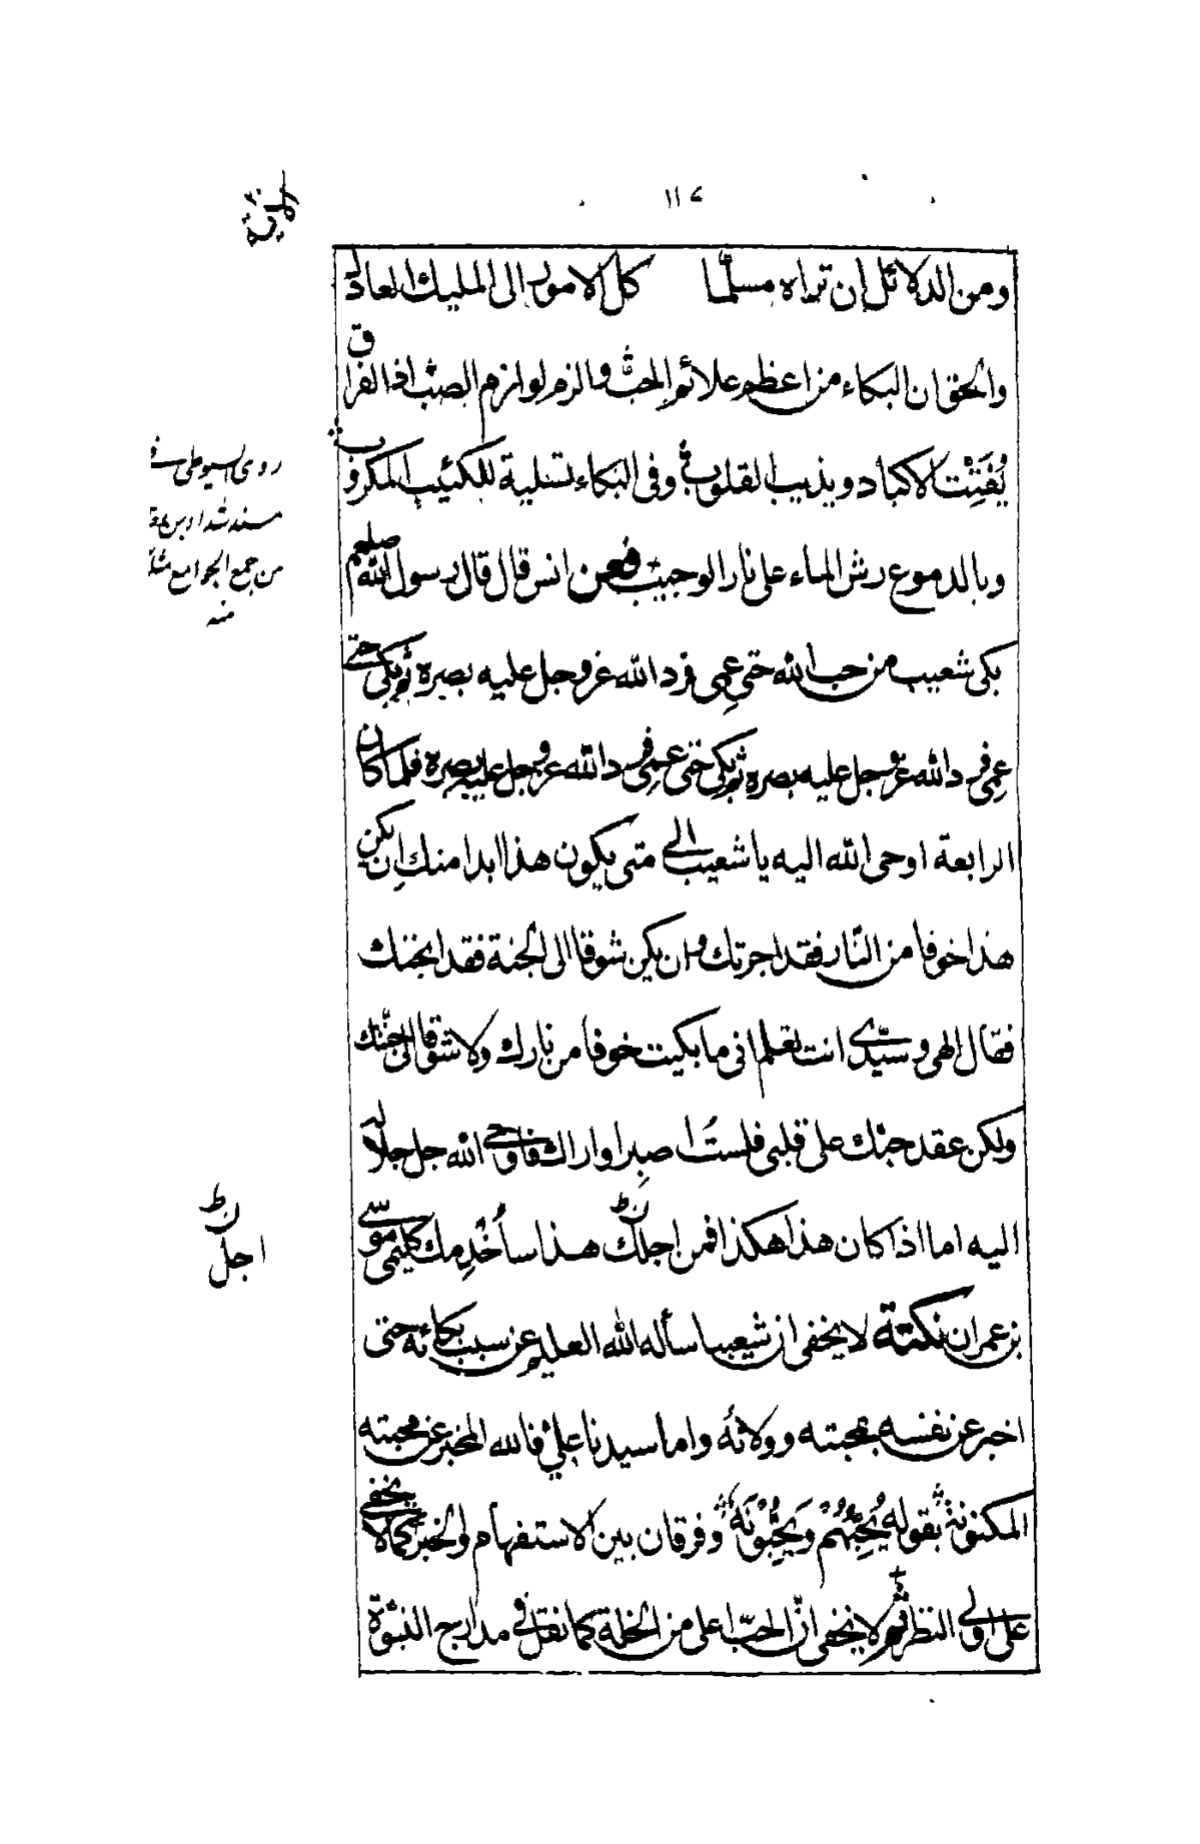 ١١٧
ومن الدلائل ان تراه مسلّما كل الامور الى المليك العادل
والحق ان البكاء من اعظم علائم الحبّ والزم لوازم الصبّ اذ الفراق
يُفَتِّت الاكباد ويذيب القلوب وفى البكاء تسلية للكئيب المكروب
وبالدموع رش الماء على نار الوجيب فعن انس قال قال رسول الله صلعم
بكى شعيب من حب الله حتى عمِى فرد الله عز وجل عليه بصره ثم بكى حتى
عمِى فرد الله عز وجل عليه بصره ثم بكى حتى عمِى فرد الله عز وجل عليه بصره فلما كان
الرابعة اوحى الله اليه يا شعيب الى متى يكون هذا ابدا منك اِن يكن
هذا خوفا من النّار فقد اجرتك وان يكن شوقا الى الجنة فقد ابحتك
فقال الهى وسيّدى انت تعلم انى ما بكيت خوفا من نارك ولا شوقا الى جنّتك
ولكن عقد حبّك على قلبى فلستُ اصبِر او اراك فاوحى الله جل جلاله
اليه اما اذا كان هذا هكذا فمن اجلك هذا سأُخْدِمك كليمى موسى
بن عمران نكتة لا يخفى ان شعيبا سأله الله العليم عن سبب بكائه حتى
اخبر عن نفسه بمحبته وولائه واما سيدنا علىّ فالله المخبر عن محبته
المكنونة بقوله يُحِبُّهُمْ وَيُحِبُّوْنَهُ وفرقان بين الاستفهام والخبر كما لا يخفى
على اولى النظر ثم لا يخفى انّ الحبّ اعلى من الخلة كما نقل فى مدارج النبوّة
روى السيوطى فى
مسند شداد بن
من جمع الجوامع
منه
ن
اجل